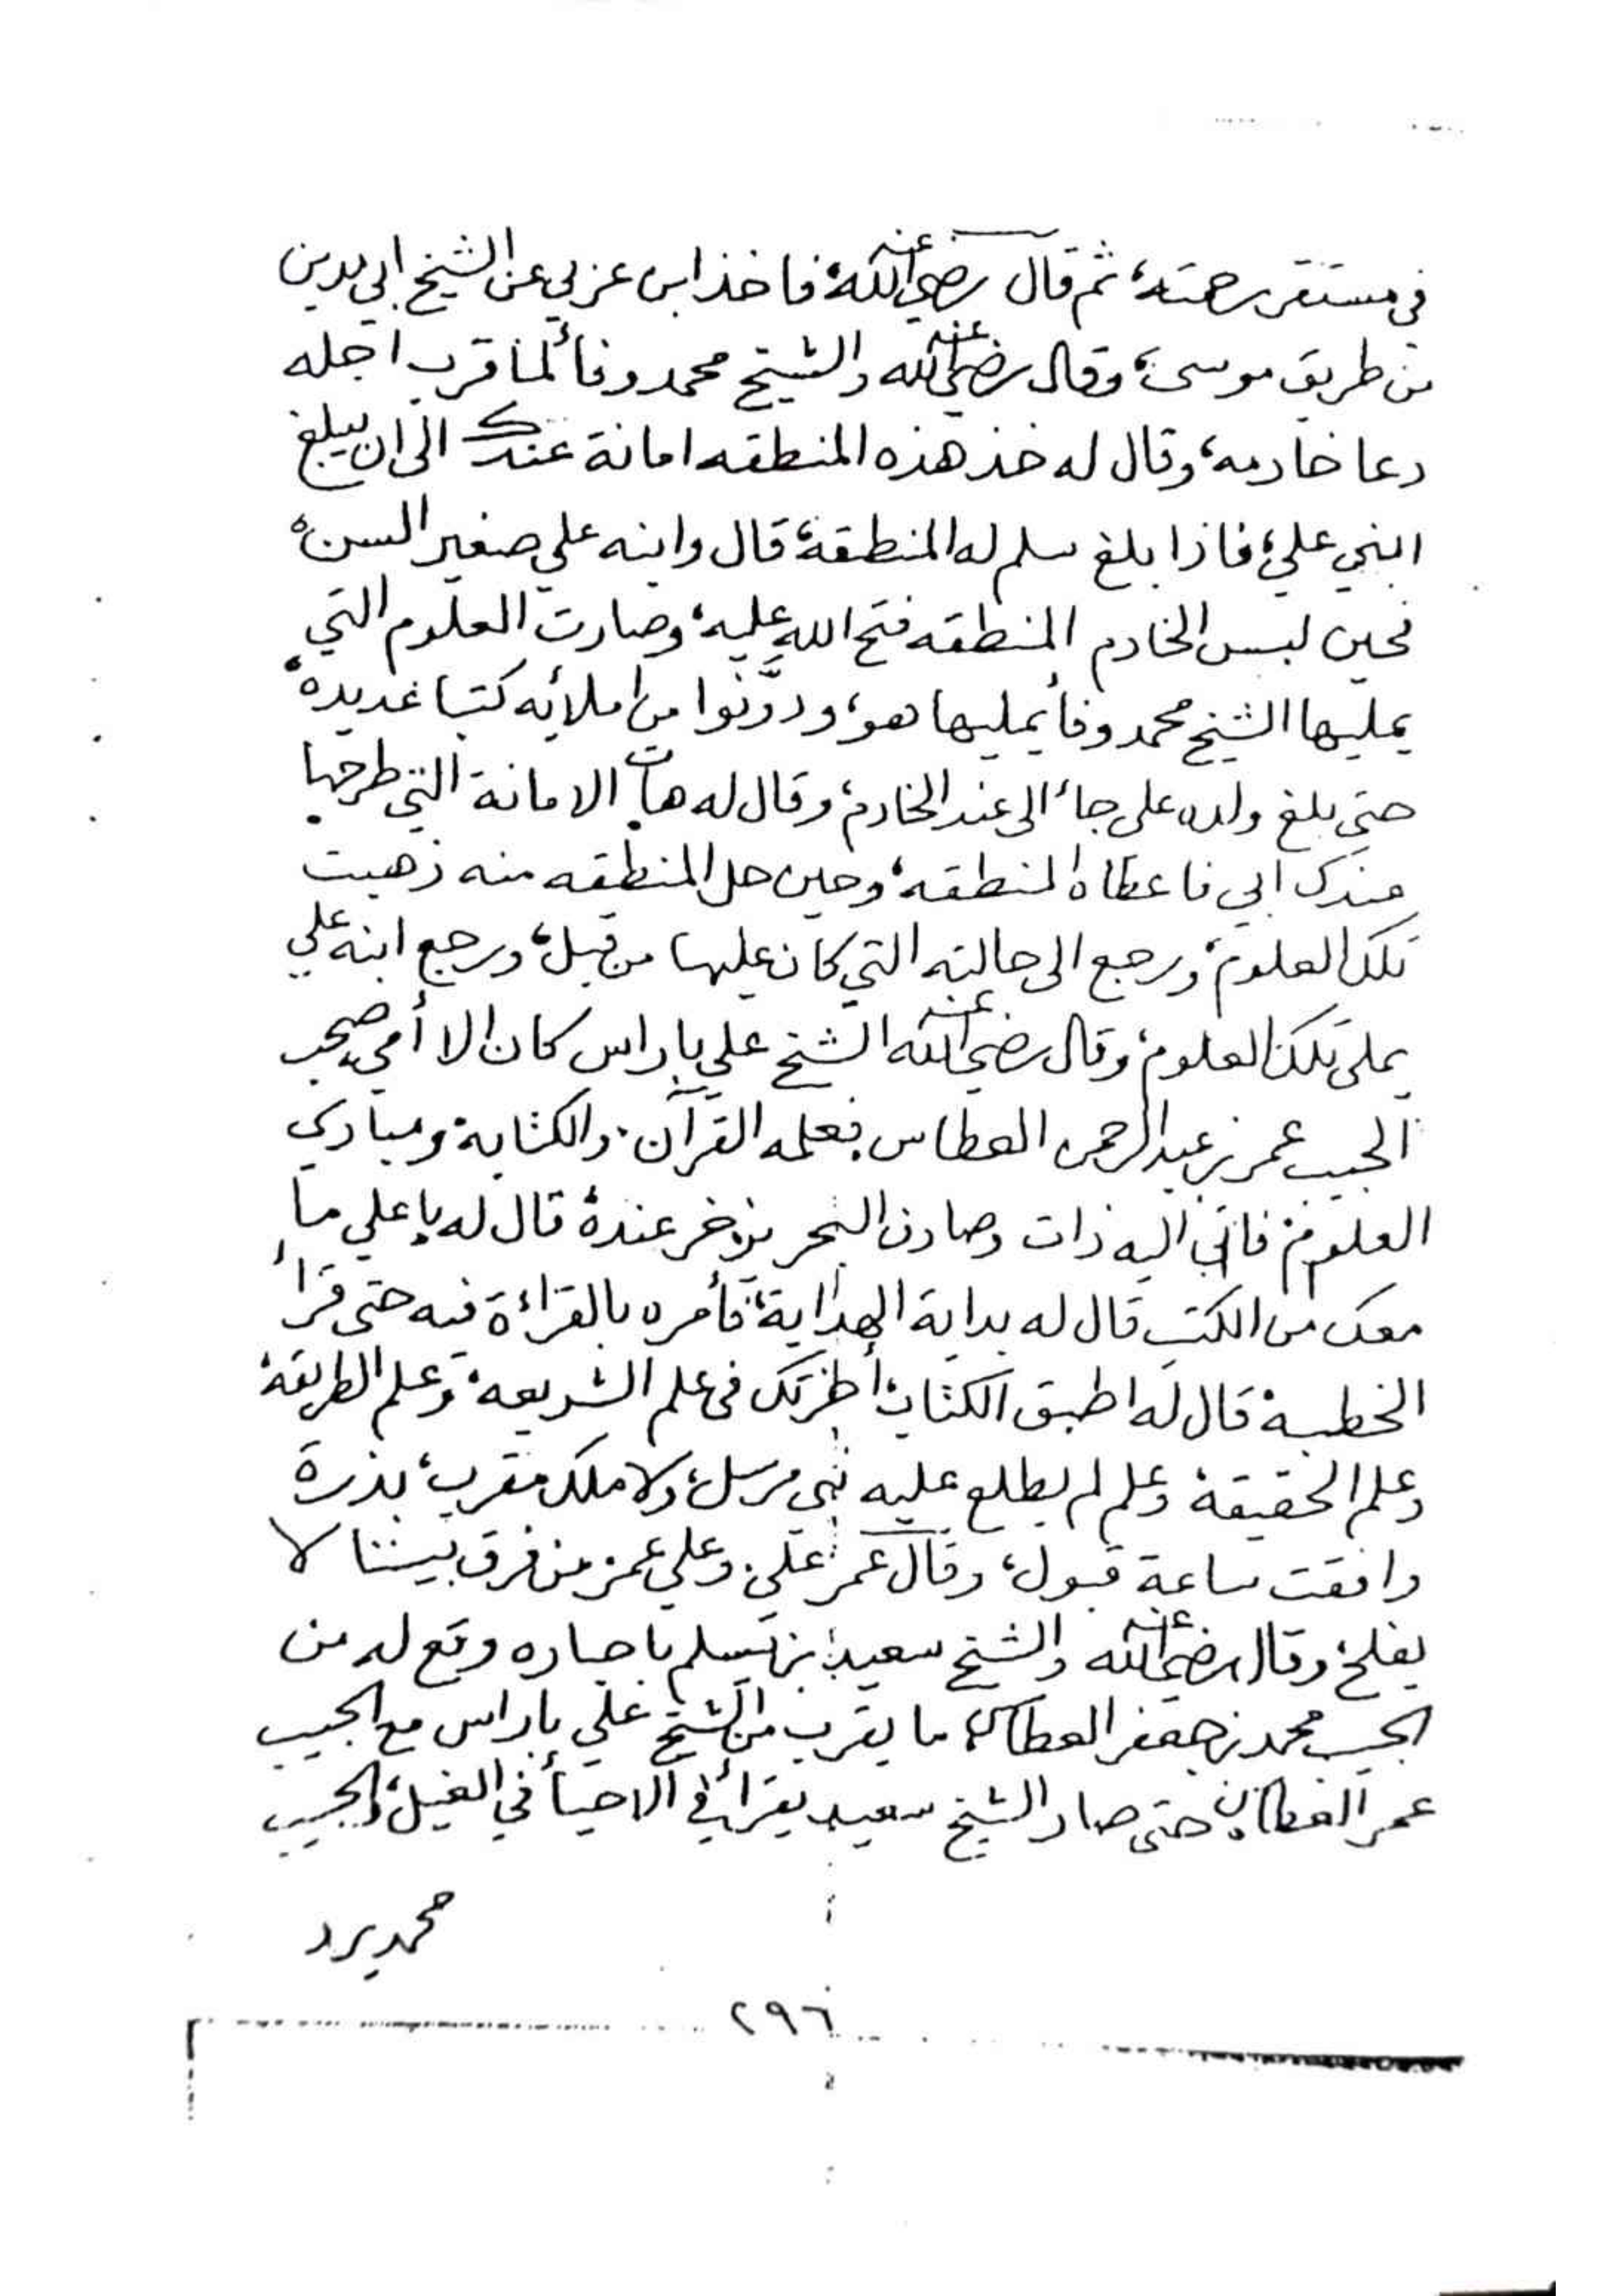 في مستقر رحمته، ثم قال رضي الله عنه فاخذ ابن عربي عن الشيخ ابي مدين
من طريق موسى، وقال رضي الله عنه والشيخ محمد وفأ لما قرب اجله
دعا خادمه، وقال له خذ هذه المنطقه امانة عندك الى ان يبلغ
ابني علي، فاذا بلغ سلم له المنطقة، قال وابنه علي صغير السن،
فحين لبس الخادم المنطقه فتح الله عليه، وصارت العلوم التي
يمليها الشيخ محمد وفأ يمليها هو، ودوَّنوا من املائه كتبا عديدة،
حتى بلغ ولده علي جاء الى عند الخادم، وقال له هات الامانة التي طرحها
عندك ابي فاعطاه المنطقه، وحين حل المنطقه منه ذهبت
تلك العلوم، ورجع الى حالته التي كان عليها من قبل، ورجع ابنه علي
يملي تلك العلوم، وقال رضي الله عنه الشيخ علي باراس كان الا أمي صحب
الحبيب عمر بن عبد الرحمن العطاس فعلمه القرآن، والكتابة، ومبادي
العلوم، فاتى اليه ذات وصادف البحر يزخر عنده، قال له يا علي ما
معك من الكتب قال له بداية الهداية، فأمره بالقراءة فيه حتى قرأ
الخطبة، قال له اطبق الكتاب، أظهرتك في علم الشريعه، وعلم الطريقة،
وعلم الحقيقة، وعلم لم يطلع عليه نبي مرسل، ولا ملك مقرب، بذرة
وافقت ساعة قبول، وقال عمر علي، وعلي عمر من فرق بيننا لا
يفلح، وقال رضي الله عنه والشيخ سعيد بن تسلم باحباره وقع له من
الحبيب محمد بن جعفر العطاس، ما يقرب من الشيخ علي باراس مع الحبيب
عمر العطاس، حتى صار الشيخ سعيد يقرأ في الاحيأ في الغيل، والحبيب
محمد يرد
٢٩٦